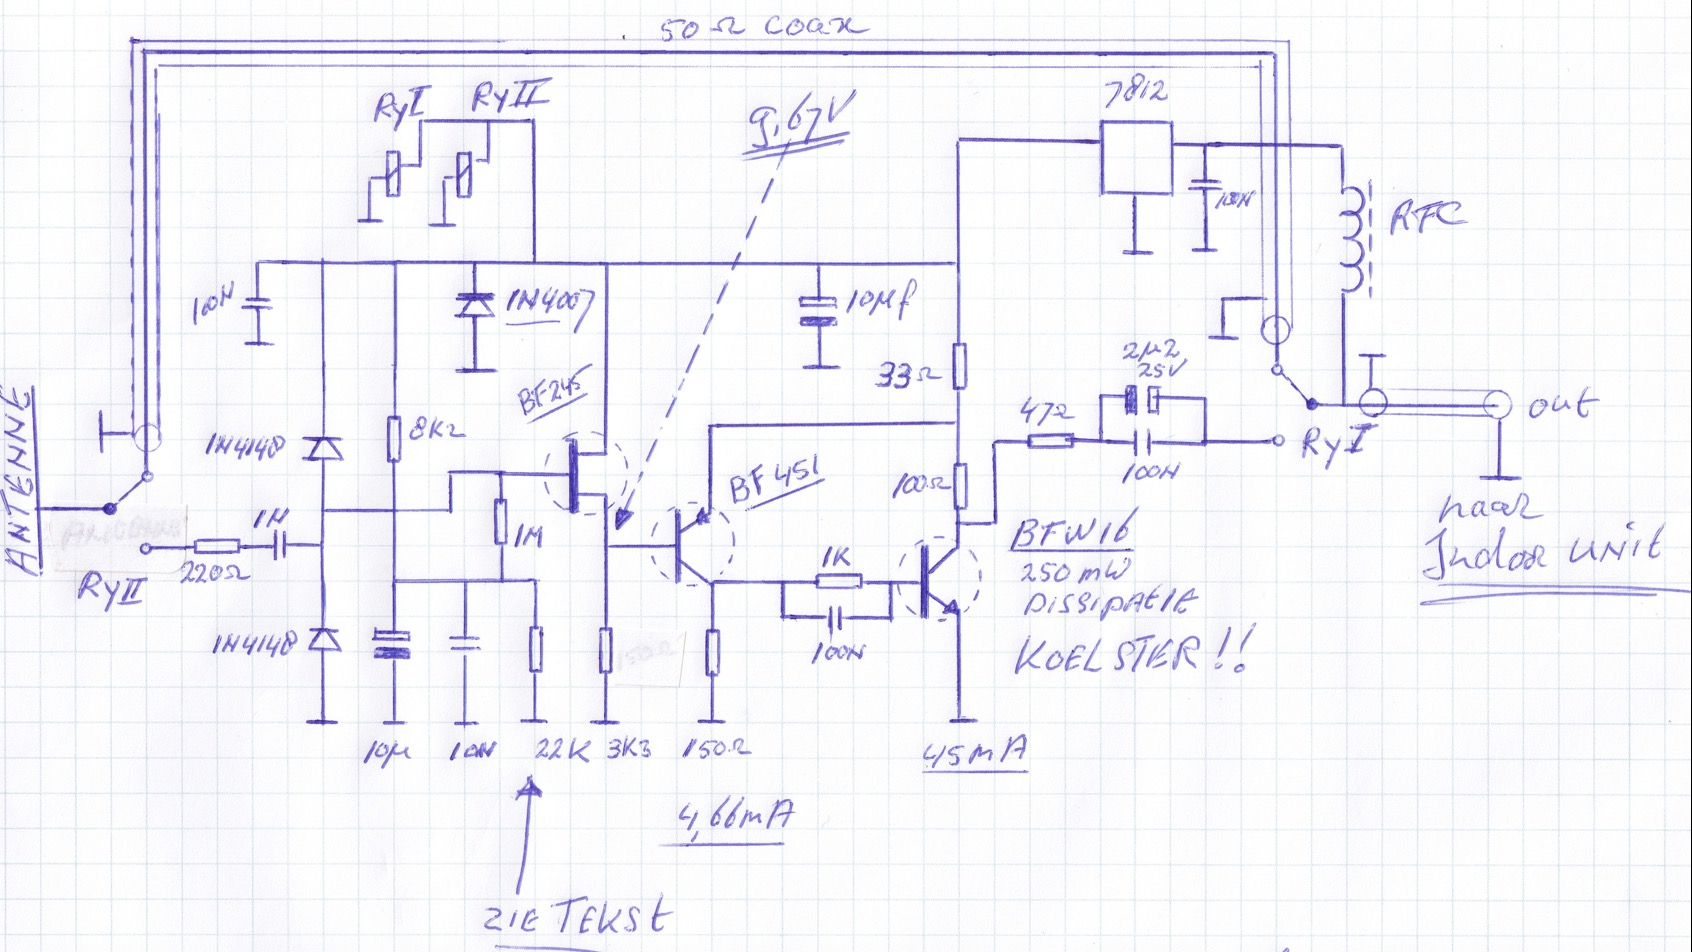 50 Ω COAX
RyI
RyII
9,67V
7812
100N
RFC
100N
1N4007
10µf
BF245
33Ω
2µ2,
25V
47Ω
out
ANTENNE
1N4148
8K2
BF451
100Ω
100N
RyI
naar
Indoor UNIT
1N
1M
BFW16
250 mW
DISSIPATIE
KOELSTER!!
220Ω
RyII
1K
1N4148
100N
10µ
100N
22K
3K3
150Ω
45mA
4,66mA
ZIE TEKST